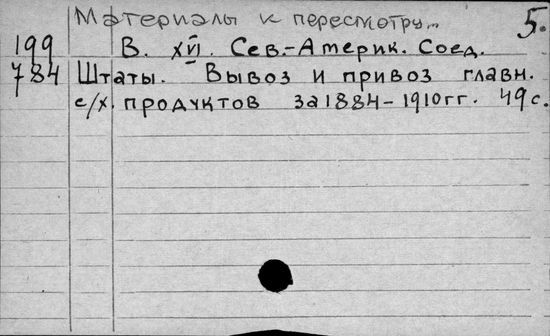 Материалы к пересмотру... 5.
199 В. XVI. Сев.-Америк. Соед.
784 Штаты. Вывоз и привоз главн.
с/х. продуктов за 1884-1910 гг. 49 с.